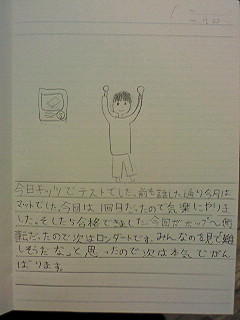 今日キッツでテストでした。前も話した通り今月は
マットでした。今回は1回目だったので気楽にやりま
した。そしたら合格できました。今回がホップへ側
転だったので次はロンダートです。みんなのを見て難
しそうだなっと思ったので次は本気でがん
ばります。